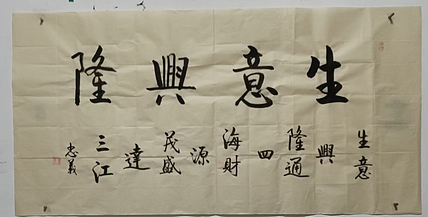 生意興隆
生意
興
隆通
四
海財
源
茂盛
達
三江
忠義